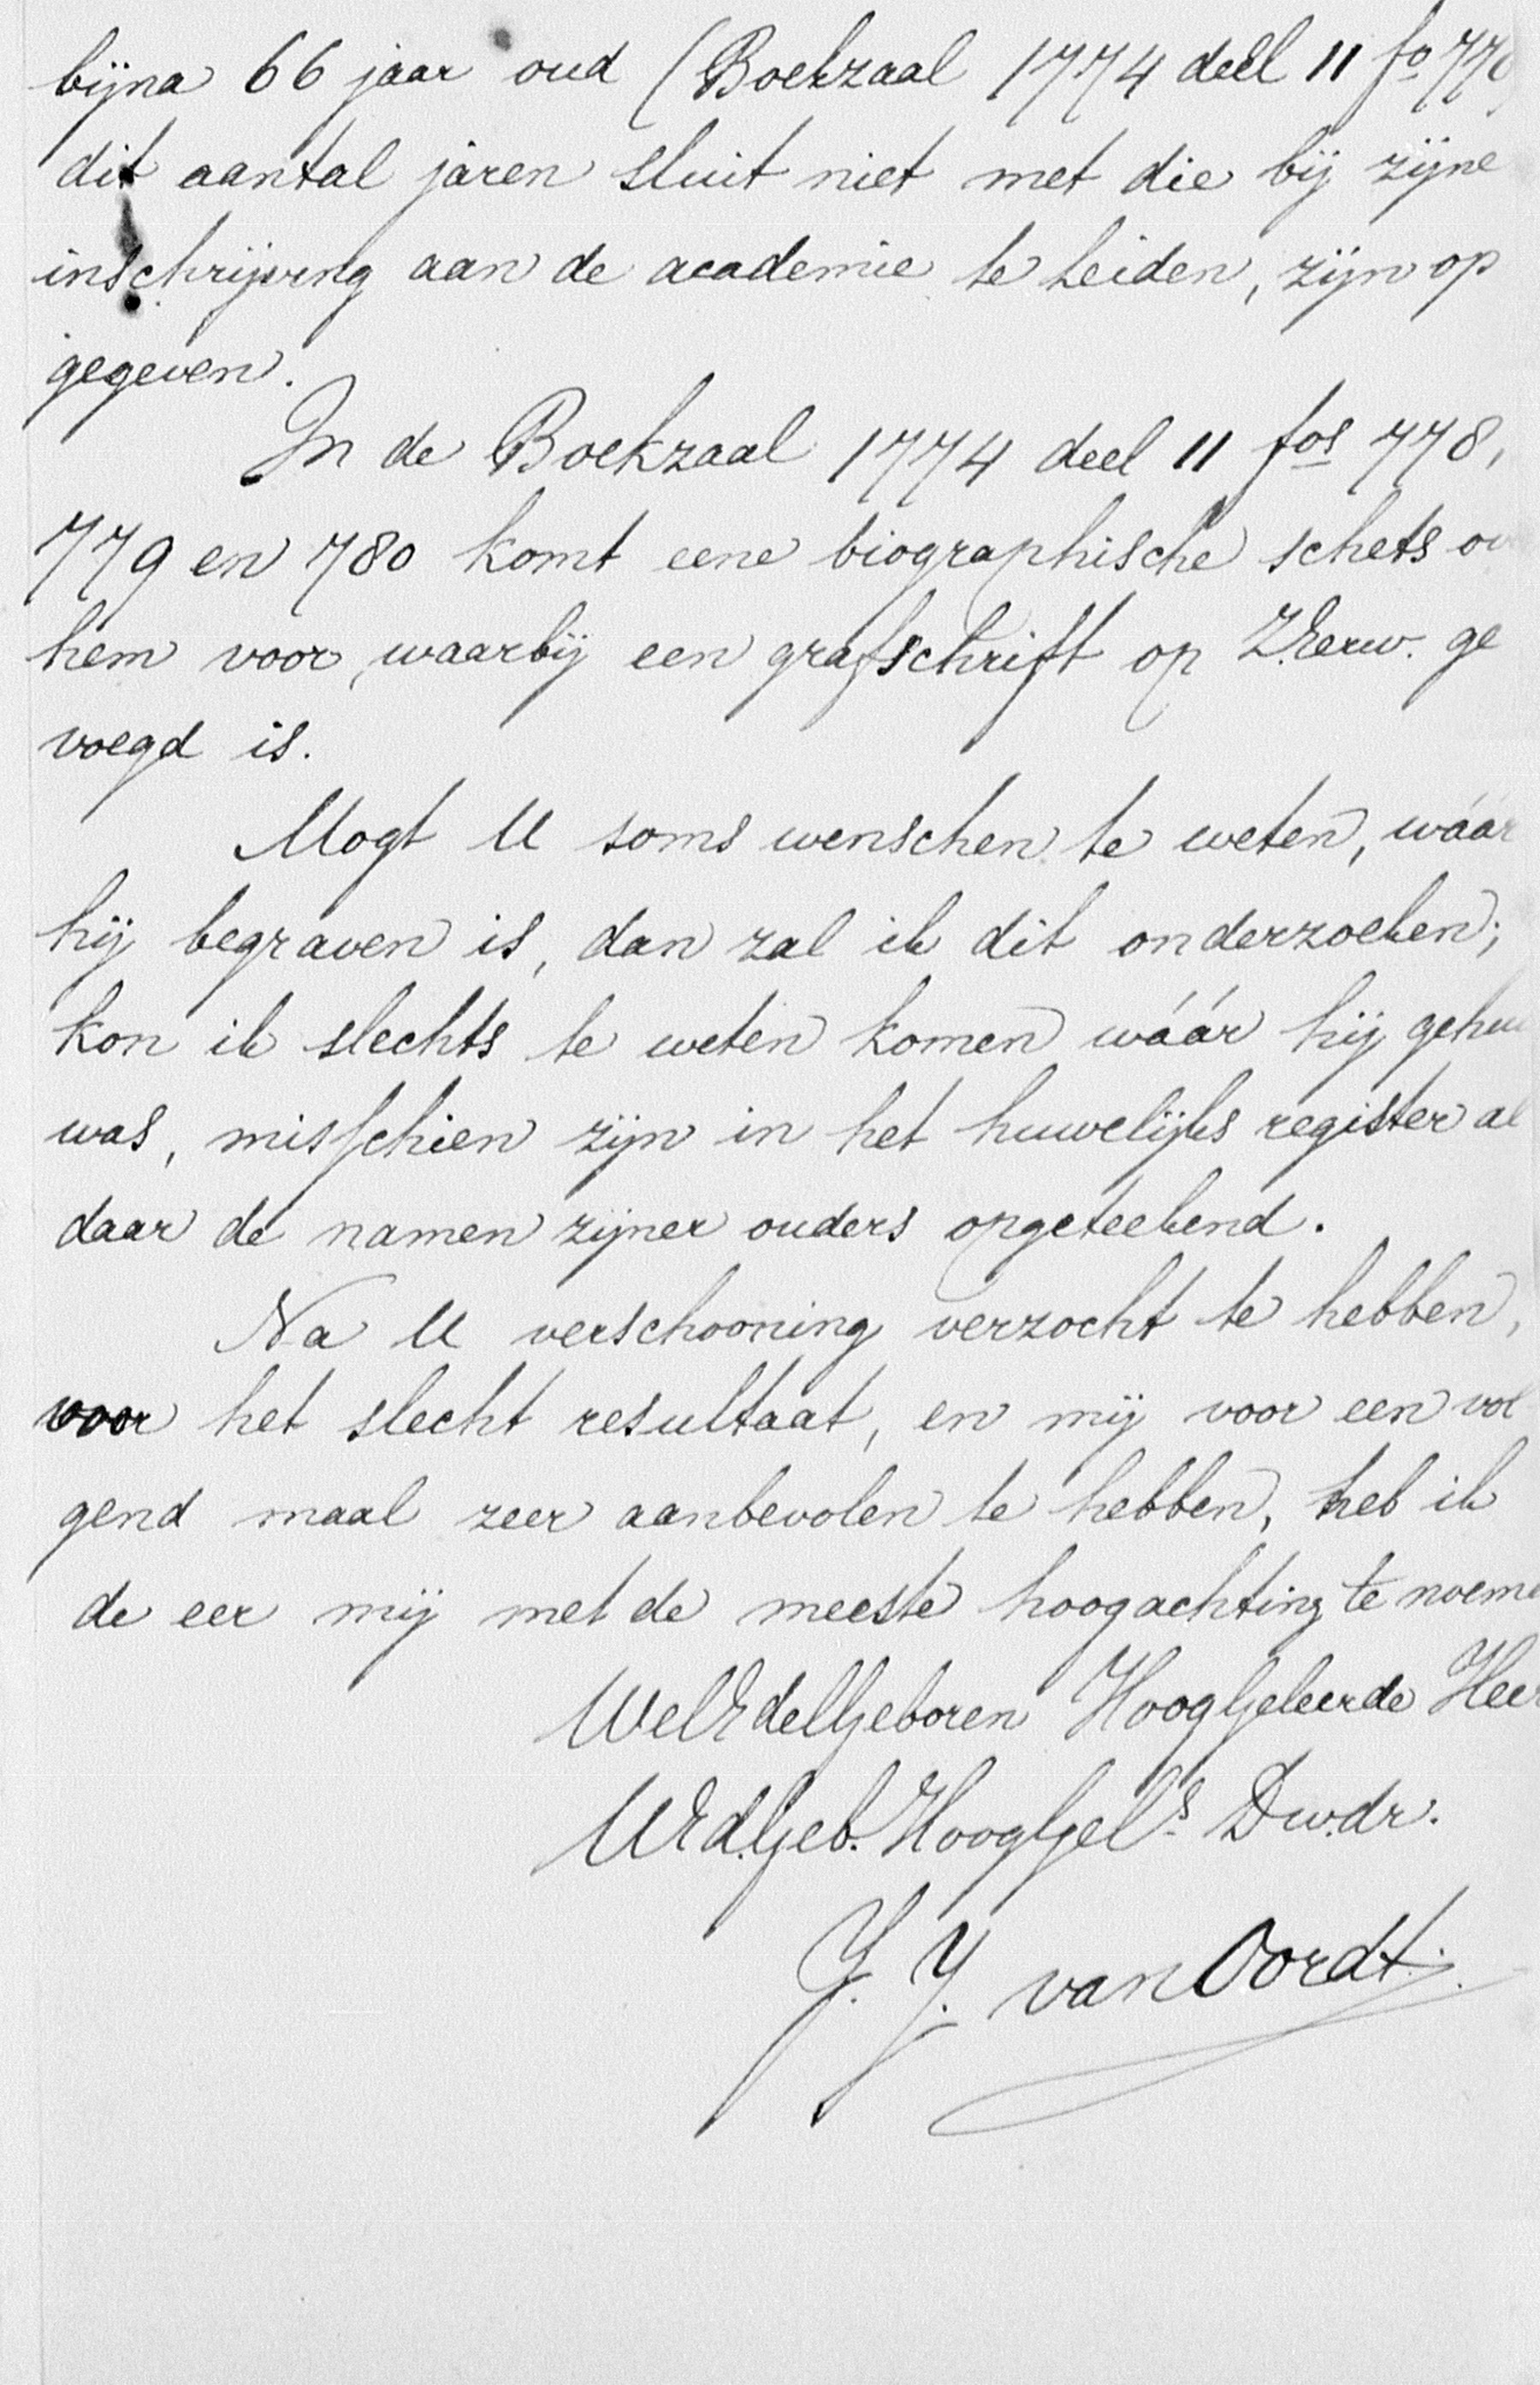 bijna 66 jaar oud (Boekzaal 1774 deel 11 fo
dit aantal jaren sluit niet met die bij zijne
inschrijving aan de academie te Leiden, zijn op
gegeven.
In de Boekzaal 1774 deel 11 fos 778,
779 en 780 komt eene biographische schets
hem voor, waarbij een grafschrift op Z.Eerw. ge
voegd is.
Mogt U soms wenschen te weten, wáár
hij begraven is, dan zal ik dit onderzoeken;
kon ik slechts te weten komen wáár hij
was, misschien zijn in het huwelijks register al
daar de namen zijner ouders opgeteekend.
Na U verschooning verzocht te hebben,
voor het slecht resultaat, en mij voor een vol
gend maal zeer aanbevolen te hebben, heb ik
de eer mij met de meeste hoogachting te noeme
WelEdelGeboren HoogGeleerde Heer
UEd.Geb. HoogGels Dw.dr.
J. J. van Oordt.